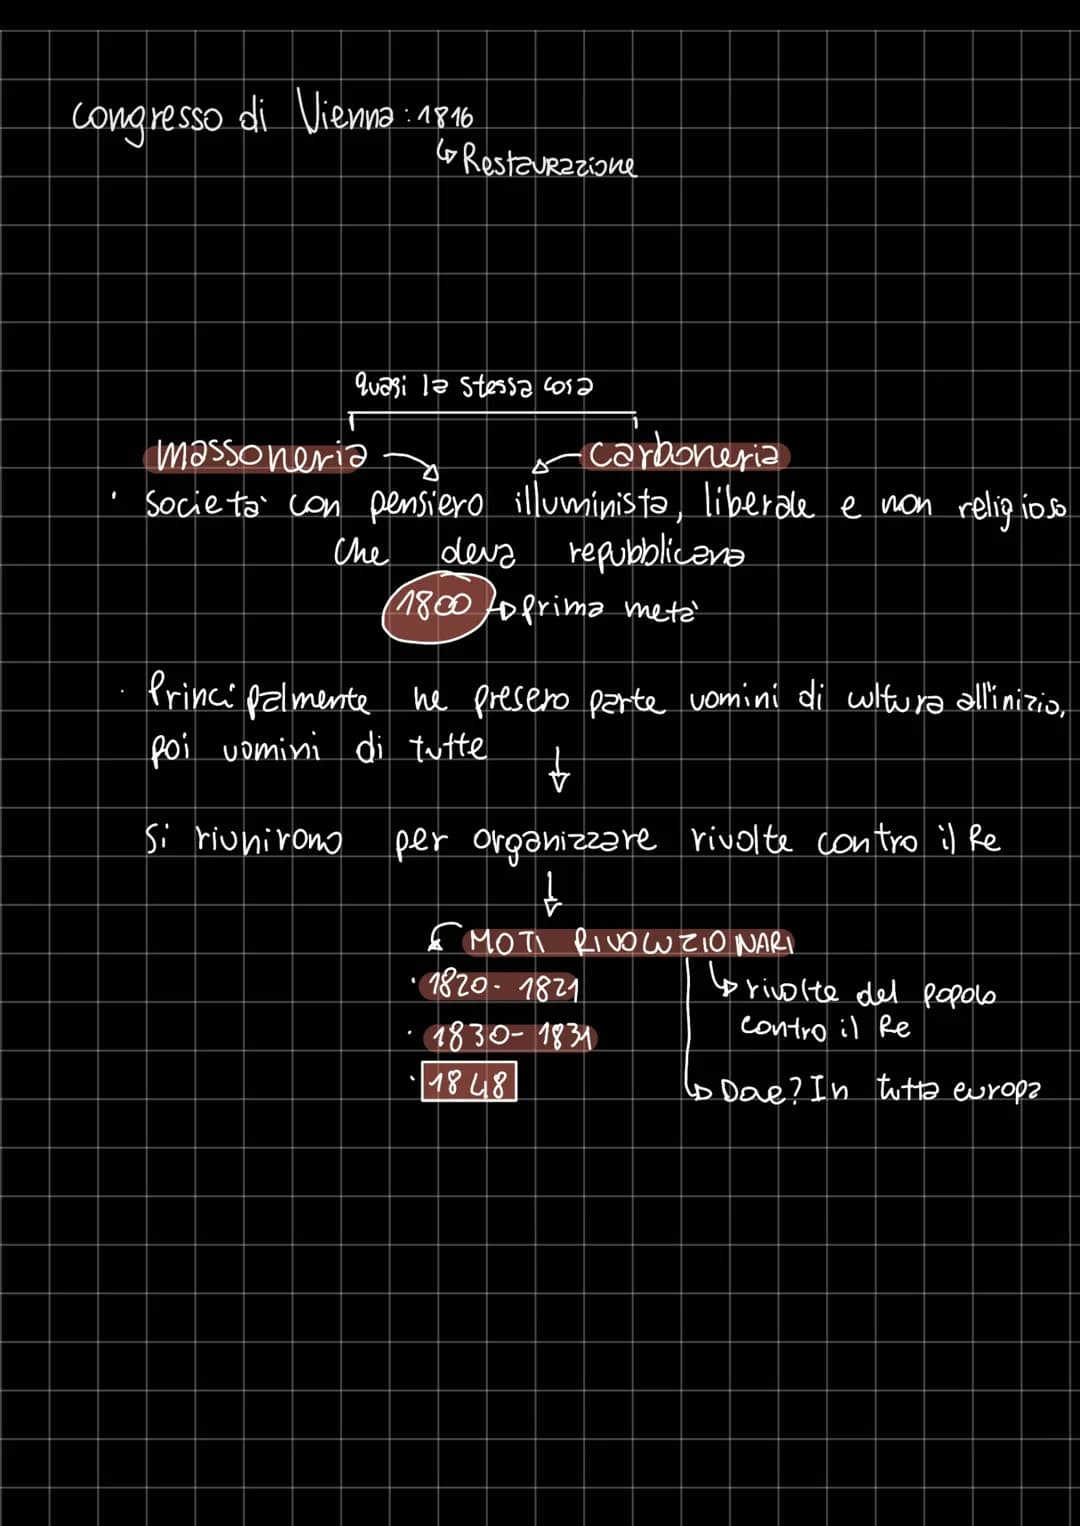 Congresso di Vienna: 1816
↳ Restaurazione
quasi la stessa cosa
massoneria → ← carboneria
· società con pensiero illuminista, liberale e non religioso
che deva repubblicana
1800 → prima metà
· Principalmente ne presero parte uomini di cultura all'inizio,
poi uomini di tutte
↓
Si riunirono per organizzare rivolte contro il Re
↓
MOTI RIVOLUZIONARI
· 1820- 1821
↳ rivolte del popolo
contro il Re
· 1830- 1831
· 1848
↳ Dove? In tutta europa